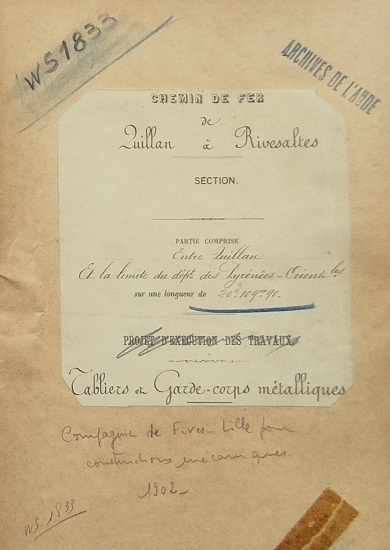 WS 1833
ARCHIVES DE L'AUDE
CHEMIN DE FER
de
Quillan à Rivesaltes
SECTION.
PARTIE COMPRISE
Entre Quillan
Et la limite du dépt. des Pyrénées-Orientles
sur une longueur de 20k109m90.
PROJET D'EXÉCUTION DES TRAVAUX.
Tabliers et Garde-corps métalliques
Compagnie de Fives-Lille pour
constructions mécaniques.
1902
WS 1833